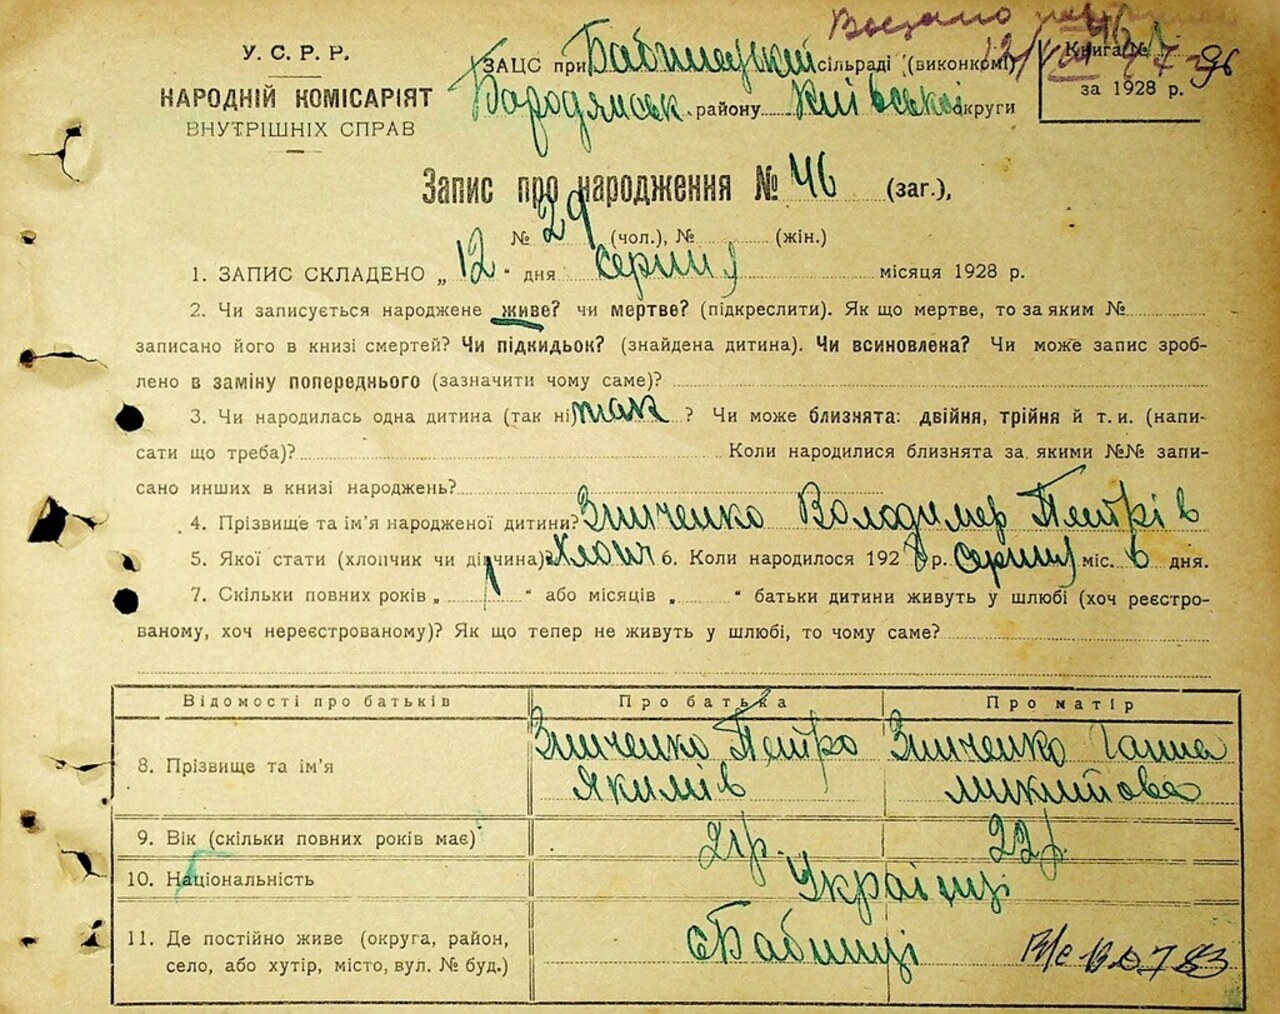 У. С. Р. Р.
НАРОДНІЙ КОМІСАРІЯТ
ВНУТРІШНІХ СПРАВ
ЗАЦС при Бабинецкий сільраді (виконкомі)
Бородянськ району Київської округи
Книга №
за 1928 р.
Запис про народження № 46 (заг.),
№ 29 (чол.), № (жін.)
1. ЗАПИС СКЛАДЕНО „ 12 " дня серпня місяця 1928 р.
2. Чи записується народжене живе? чи мертве? (підкреслити). Як що мертве, то за яким №
записано його в книзі смертей? Чи підкидьок? (знайдена дитина). Чи всиновлена? Чи може запис зроб-
лено в заміну попереднього (зазначити чому саме)?
3. Чи народилась одна дитина (так ні) так ? Чи може близнята: двійня, трійня й т. и. (напи-
сати що треба)? Коли народилися близнята за якими №№ запи-
сано инших в книзі народжень?
4. Прізвище та ім'я народженої дитини? Зинченко Володимер Петрів
5. Якої статі (хлопчик чи дівчина)? Хлопч 6. Коли народилося 192 8 р. серпня міс. 6 дня.
7. Скільки повних років „ 1 " або місяців „ " батьки дитини живуть у шлюбі (хоч реєстро-
ваному, хоч нереєстрованому)? Як що тепер не живуть у шлюбі, то чому саме?
Відомості про батьків Про батька Про матір
8. Прізвище та ім'я Зинченко Петро Якимів Зинченко Ганна Микитова
9. Вік (скільки повних років має) 21р. 22р.
10. Національність Українці
11. Де постійно живе (округа, район,
село, або хутір, місто, вул. № буд.) с Бабинці